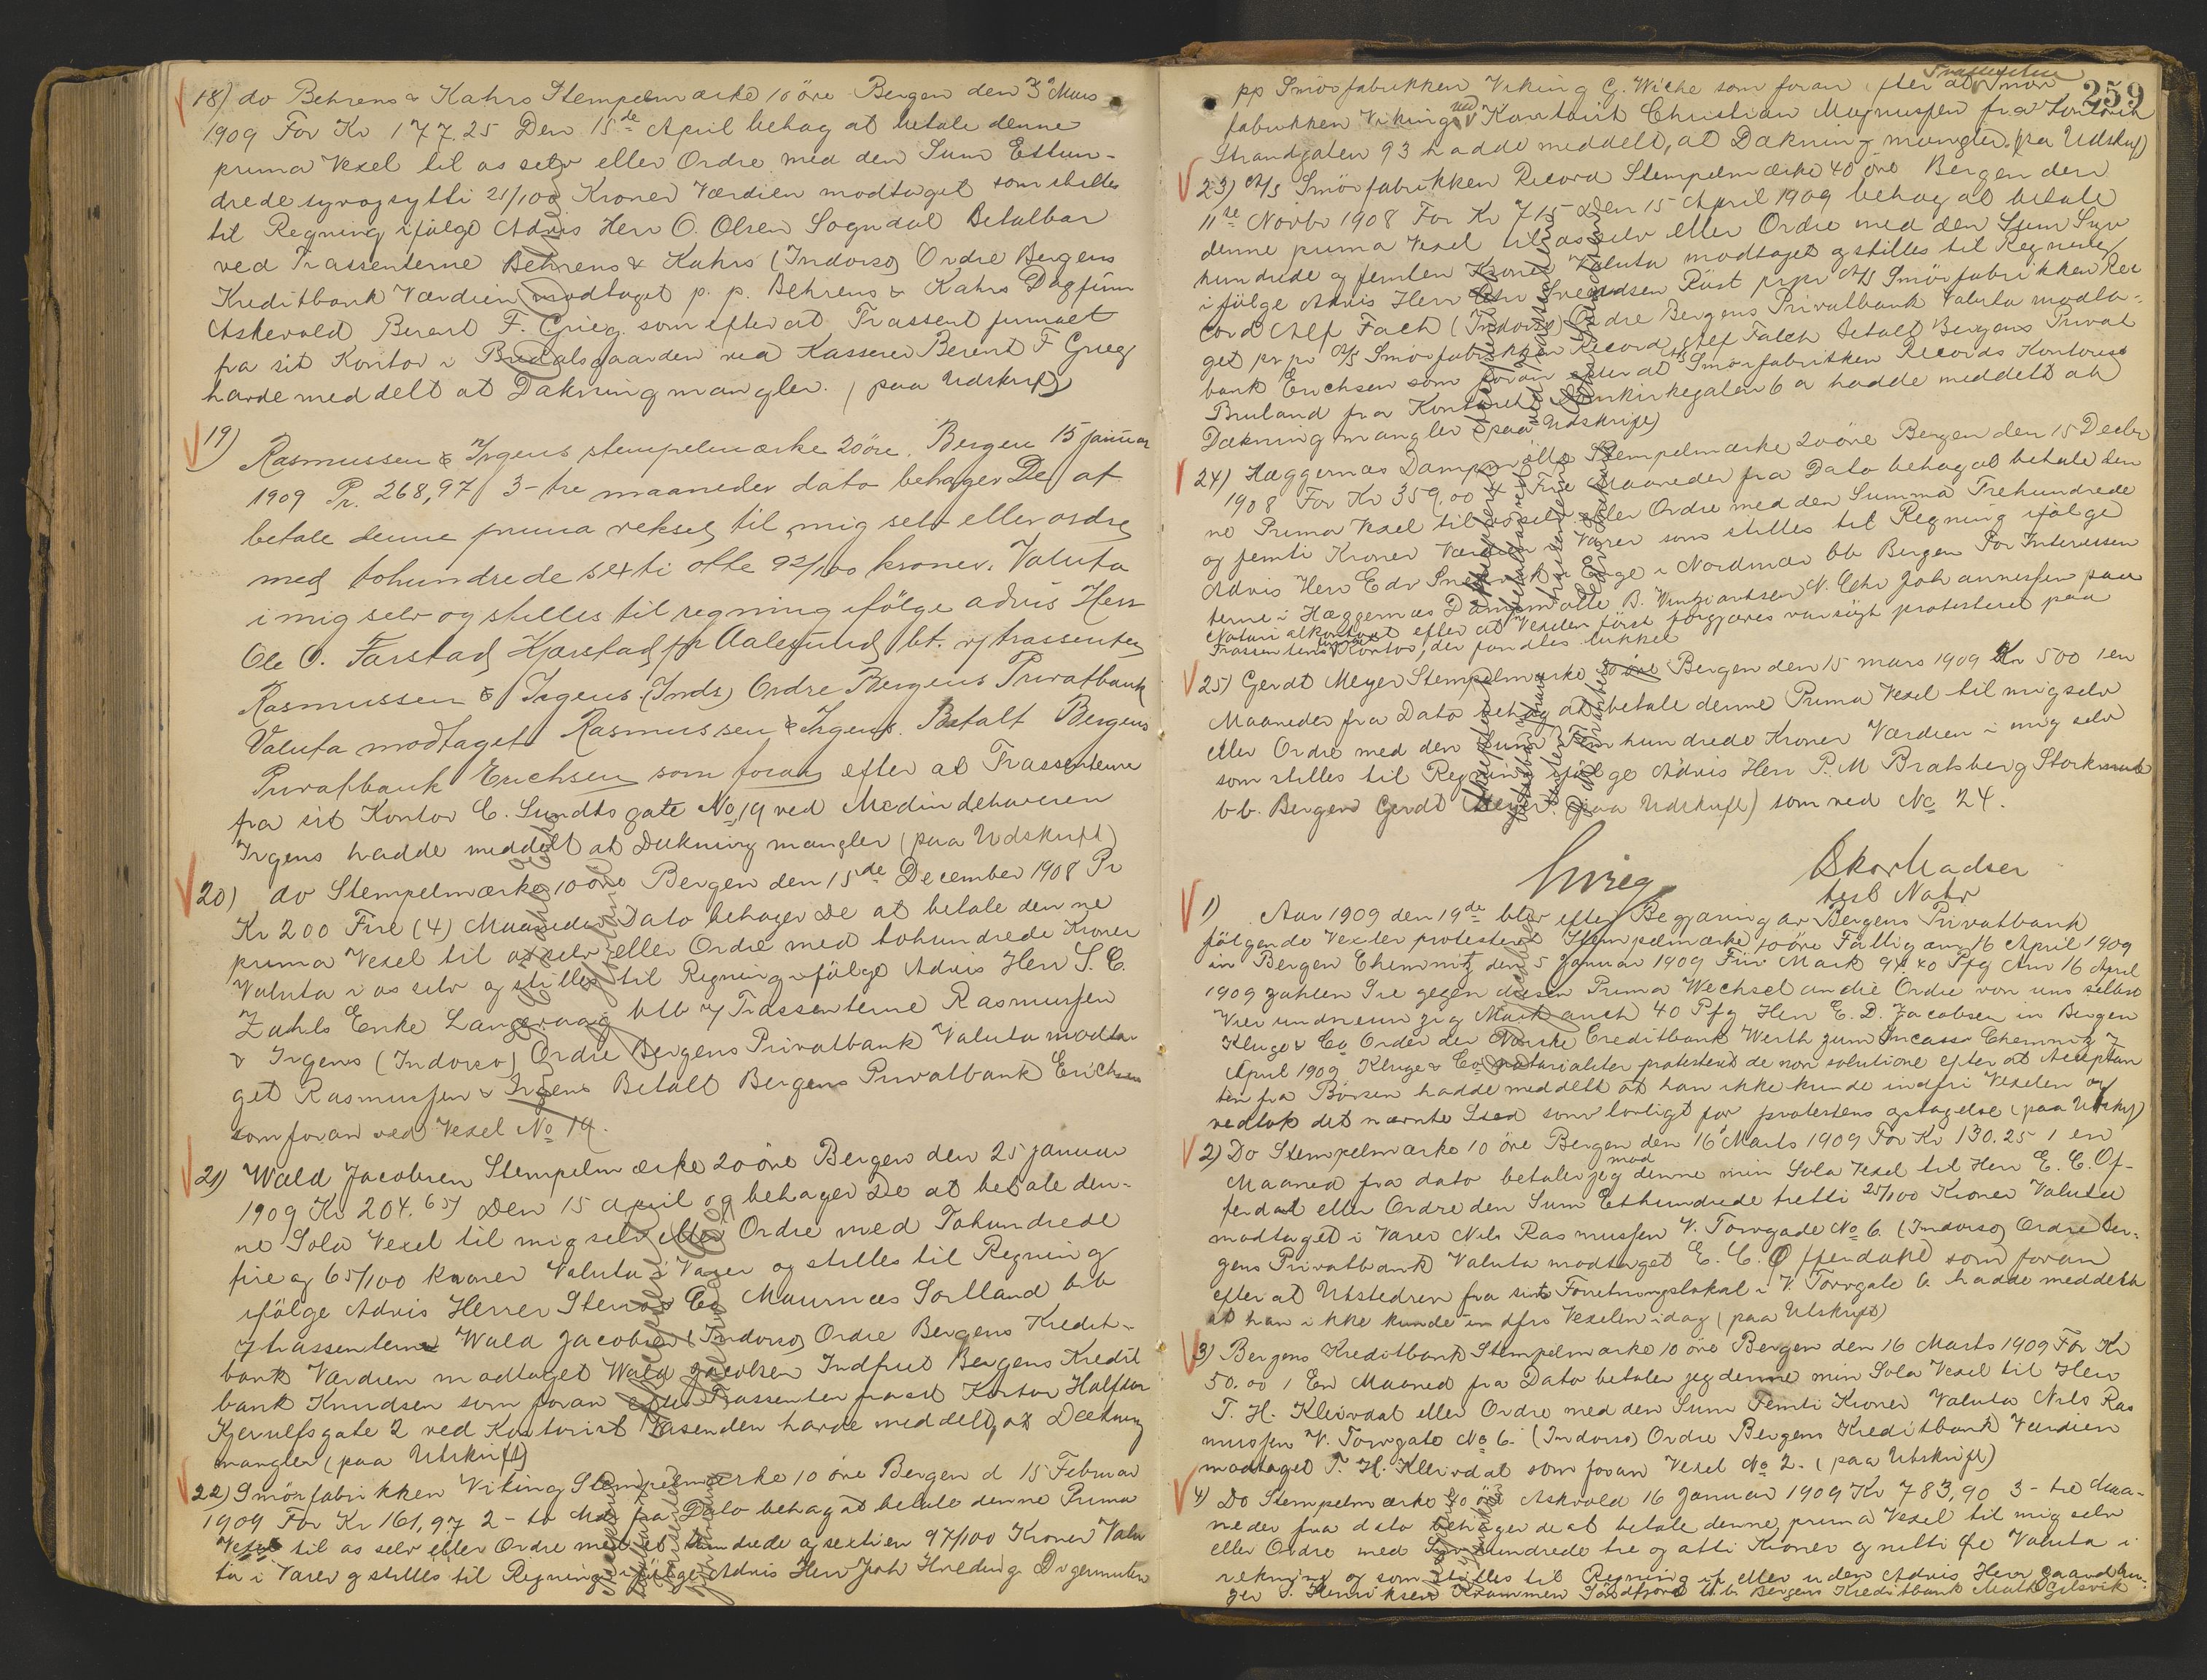 18) do Behrens & Kahrs Stempelmærke 10 öre Bergen den 3 Mars
1909 For Kr 177.25 Den 15de April behag at betale denne
prima Vexel til os selv eller Ordre med den Sum Ethun-
drede syvogsytti 25/100 Kroner Værdien modtaget som stilles
til Regning ifølge Advis Herr O. Olsen Sogndal Betalbar
ved Trassenterne Behrens & Kahrs (Indorso) Ordre Bergens
Kreditbank Værdien modtaget p. p. Behrens & Kahrs Dagfinn
Askevold Berent F. Grieg som efter at Trassent firmaet
fra sit Kontor i ved Kasserer Berent F Grieg
havde meddelt at Dækning mangler. (paa Udskrift)
19)
Rasmussen & Irgens stempelmærke 20 öre. Bergen 15 januar
1909 Pr. 268,97/ 3-tre maaneder dato behager De at
betale denne prima veksel til mig selv eller ordre
med tohundrede sexti otte 92/100 kroner. Valuta
i mig selv og stilles til regning ifölge advis Herr
Ole O. Farstad Kjørstad pr Aalesund bt. v/ trassenten
Rasmussen & Irgens (Inds) Ordre Bergens Privatbank
Valuta modtaget Rasmussen & Irgens. Betalt Bergens
Privatbank Erichsen som foran efter at Trassenterne
fra sit Kontor C. Sundts gate No 19 ved Medindehaveren
Irgens hadde meddelt at Dækning mangler (paa Udskrift)
20) do Stempelmærke 10 öre Bergen den 15de December 1908 Pr
Kr 200 Fire (4) Maaneder Dato behager De at betale denne
prima Vexel til os selv eller Ordre med tohundrede Kroner
Valuta i os selv og stilles til Regning ifølge Advis Herr S. C.
Zahls Enke Langevaag btb v/ Trassenterne Rasmussen
& Irgens (Indorso) Ordre Bergens Privatbank Valuta modta-
get Rasmussen & Irgens Betalt Bergens Privatbank Erichsen
som foran ved Vexel No 19.
21) Wald Jacobsen Stempelmærke 20 öre Bergen den 25 januar
1909 Kr 204.65/ Den 15 april og behager De at betale den-
ne Sola Vexel til mig selv eller Ordre med Tohundrede
fire og 65/100 kroner Valuta i Varer og stilles til Regning
ifölge Advis Herrer & Co Maurnæs Sortland btb
v/ trassenterne Wald Jacobsen (Indorso) Ordre Bergens Kredit-
bank Værdien modtaget Wald Jacobsen Indfriet Bergens Kredit
bank Knudsen som foran efter Trassenten fra sit Kontor Halfdan
Kjerulfsgate 2 ved Kontorist Vasenden havde meddelt, at Dækning
mangler (paa Utskrift)
22) Smörfabrikken Viking Stempelmærke 10 öre Bergen d 15 Februar
1909 For Kr 161,97 2-to Mdr fra Dato behag at betale denne Prima
Vexel til os selv eller Ordre med et hundrede og sextien 97/100 Kroner Valu
ta i Varer og stilles til Regning ifølge Advis Herr Joh Hveding Digermulen
259
pp Smörfabrikken Viking G. Wiche som foran efter at Smör
fabrikken Viking ved Kontorist Christian Magnussen fra Kontoret
Strandgaten 93 hadde meddelt, at Dækning mangler. (paa Udskrift)
23) A/S Smörfabrikken Record Stempelmærke 40 öre Bergen den
11te Novbr 1908 For Kr 715 Den 15 April 1909 behag at betale
denne prima Vexel til os selv eller Ordre med den Sum Syv
hundrede og femten Kroner Valuta modtaget og stilles til Regning
ifölge Advis Herr Chr Svendsen Röst pr pr A/S Smörfabrikken Re
cord Alf Falch (Indorso) Ordre Bergens Privatbank Valuta modta-
get pr pr A/S Smörfabrikken Record Alf Falch Betalt Bergens Privat
bank Erichsen som foran efter at A/S Smörfabrikken Records Kontorist
Bruland fra Kontoret 6 a hadde meddelt at
Dækning mangler (paa Udskrift)
24) Hæggernæs Dampmölle Stempelmærke 20 öre Bergen den 15 Decbr
1908 For Kr 359.00 4 Fire Maaneder fra Dato behag at betale den
ne Prima Vexel til os selv eller Ordre med den Summa Trehundrede
og femti Kroner Værdien i Varer som stilles til Regning ifølge
Advis Herr Edv i Nordmør bb Bergen For Interessen
terne i Hæggernæs Dampmölle B. N. Chr Johannessen paa
Notarialkontoret efter at Vexelen först forgjæves var sögt protesteret paa
Trassentens Kontor, der fandtes lukket
25) Gerdt Meyer Stempelmærke Bergen den 15 mars 1909 Kr 500 1 en
Maaneder fra Dato behag at betale denne Prima Vexel til mig selv
eller Ordre med den Sum Fem hundrede Kroner Værdien i mig selv
som stilles til Regning ifølge Advis Herr P. M Bratsberg
bb. Bergen Gerdt Meyer (paa Udskrift) som ved No 24.
Grieg
Oskar Madsen
test Notr
1) Aar 1909 den 19de blev efter Begjæring av Bergens Privatbank
fölgende Vexler protesteret Stempelmærke 10 öre Fällig am 16 April 1909
in Bergen Chemnitz den 5 Januar 1909 Für Mark 94.40 Pfg Am 16 April
1909 zahlen Sie gegen diesen Prima Wechsel an die Ordre von uns selbst
Vier und neunzig Mark auch 40 Pfg Herr E. D. Jacobsen in Bergen
Kluge & Co Order der Norske Creditbank Werth zum Incasso Chemnitz 7
April 1909 Kluge & Co notarialiter protestert de non solutione efter at Acceptan
ten fra Börsen hadde meddelt at han ikke kunde indfri Vexelen og
vedtok det nævnte Sted som lovligt for protestens optagelse (paa Utskrift)
2) Do Stempelmærke 10 öre Bergen den 16 Marts 1909 For Kr 130.25 1 en
Maaned fra dato betaler jeg mod denne min Sola Vexel til Herr E. C. Of-
ferdal eller Ordre den Sum Ethundrede tretti 25/100 Kroner Valuta
modtaget i Varer Nils Rasmussen V. Torvgade No 6. (Indorso) Ordre Ber-
gens Privatbank Valuta modtaget E. C. Offerdahl som foran
efter at Utstedren fra sint Forretningslokal i V. Torvgate 6 hadde meddelt
at han ikke kunde indfri Vexelen idag (paa Utskrift)
3) Bergens Kreditbank Stempelmærke 10 öre Bergen den 16 Marts 1909 For Kr
50.00 1 En Maaned fra Dato betaler jeg denne min Sola Vexel til Herr
T. H. Kleivdal eller Ordre med den Sum Femti Kroner Valuta Nils Ras
mussen V. Torvgate No 6. (Indorso) Ordre Bergens Kreditbank Værdien
modtaget T. H. Kleivdal som foran Vexel No 2. (paa Utskrift)
4) Do Stempelmærke 40 öre Askvold 16 Januar 1909 Kr 783,90 3-tre Maa-
neder fra dato behager de at betale denne prima Vexel til mig selv
eller Ordre med Syvhundrede tre og otti Kroner og nitti Øre Valuta i
rekning og som stilles til Regning if eller uden Advis Herr
J. Henriksen Krammen Söndfjord bb Bergens Kreditbank Math Gilsvik